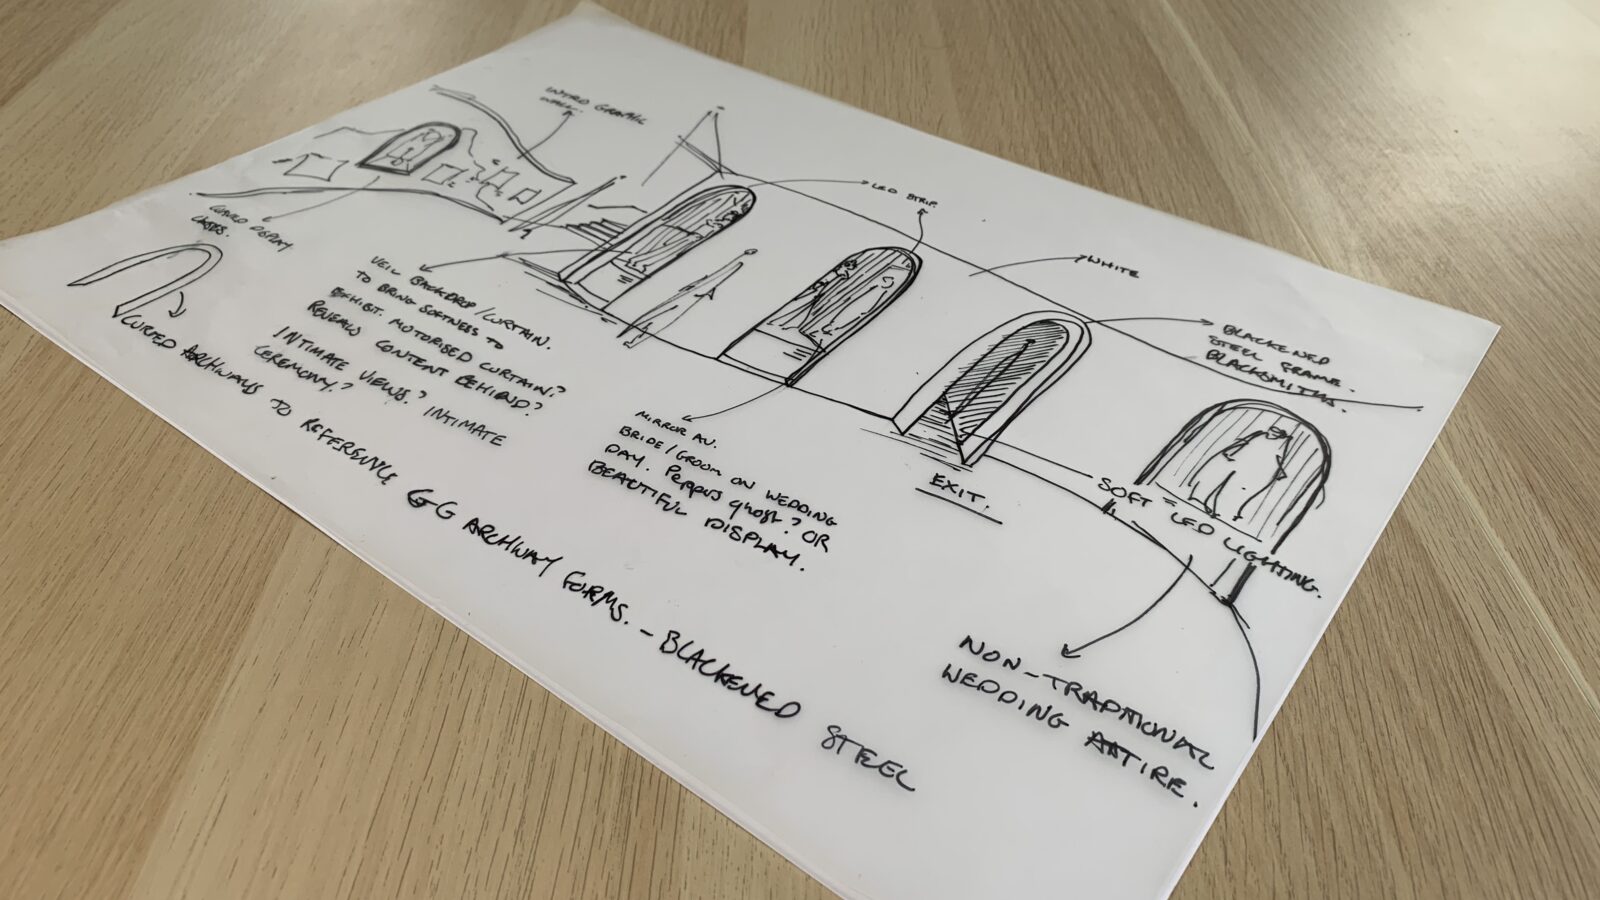 INTRO GRAPHIC
WALL.
LED STRIP.
WHITE
BLACKENED
STEEL FRAME.
BLACKSMITHS.
DISPLAY
CASES.
VEIL BACKDROP/CURTAIN.
TO BRING SOFTNESS TO
EXHIBIT. MOTORISED CURTAIN?
REVEALS CONTENT BEHIND?
INTIMATE VIEWS? INTIMATE
CEREMONY?
CURVED ARCHWAYS TO REFERENCE GG ARCHWAY FORMS. - BLACKENED STEEL
MIRROR AV.
BRIDE/GROOM ON WEDDING
DAY. PEPPERS GHOST? OR
BEAUTIFUL DISPLAY.
EXIT.
SOFT LED LIGHTING.
NON-TRADITIONAL
WEDDING ATTIRE.